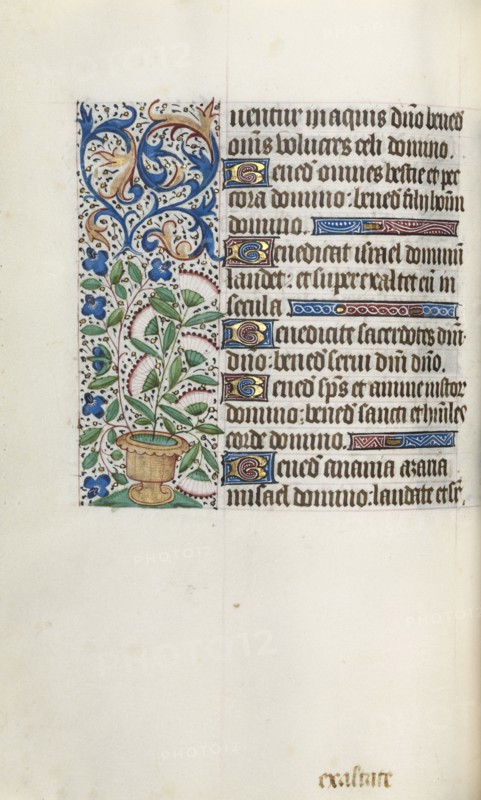 uentur in aquis dño bened
om̃s uolucres celi domino.
Bened omnes bestie et pec
cora domino : bened filij hoım
domino.
Benedicat israel dominũ
laudet : et superexaltet eũ in
secula
Benedicite sacerdotes dñi
dño : bened serui dñi dño.
Bened sp̃s et anime iustor
domino : bened sancti et humiles
corde domino.
Bened anania azaria
misael domino : laudate et sr̃
exaltate